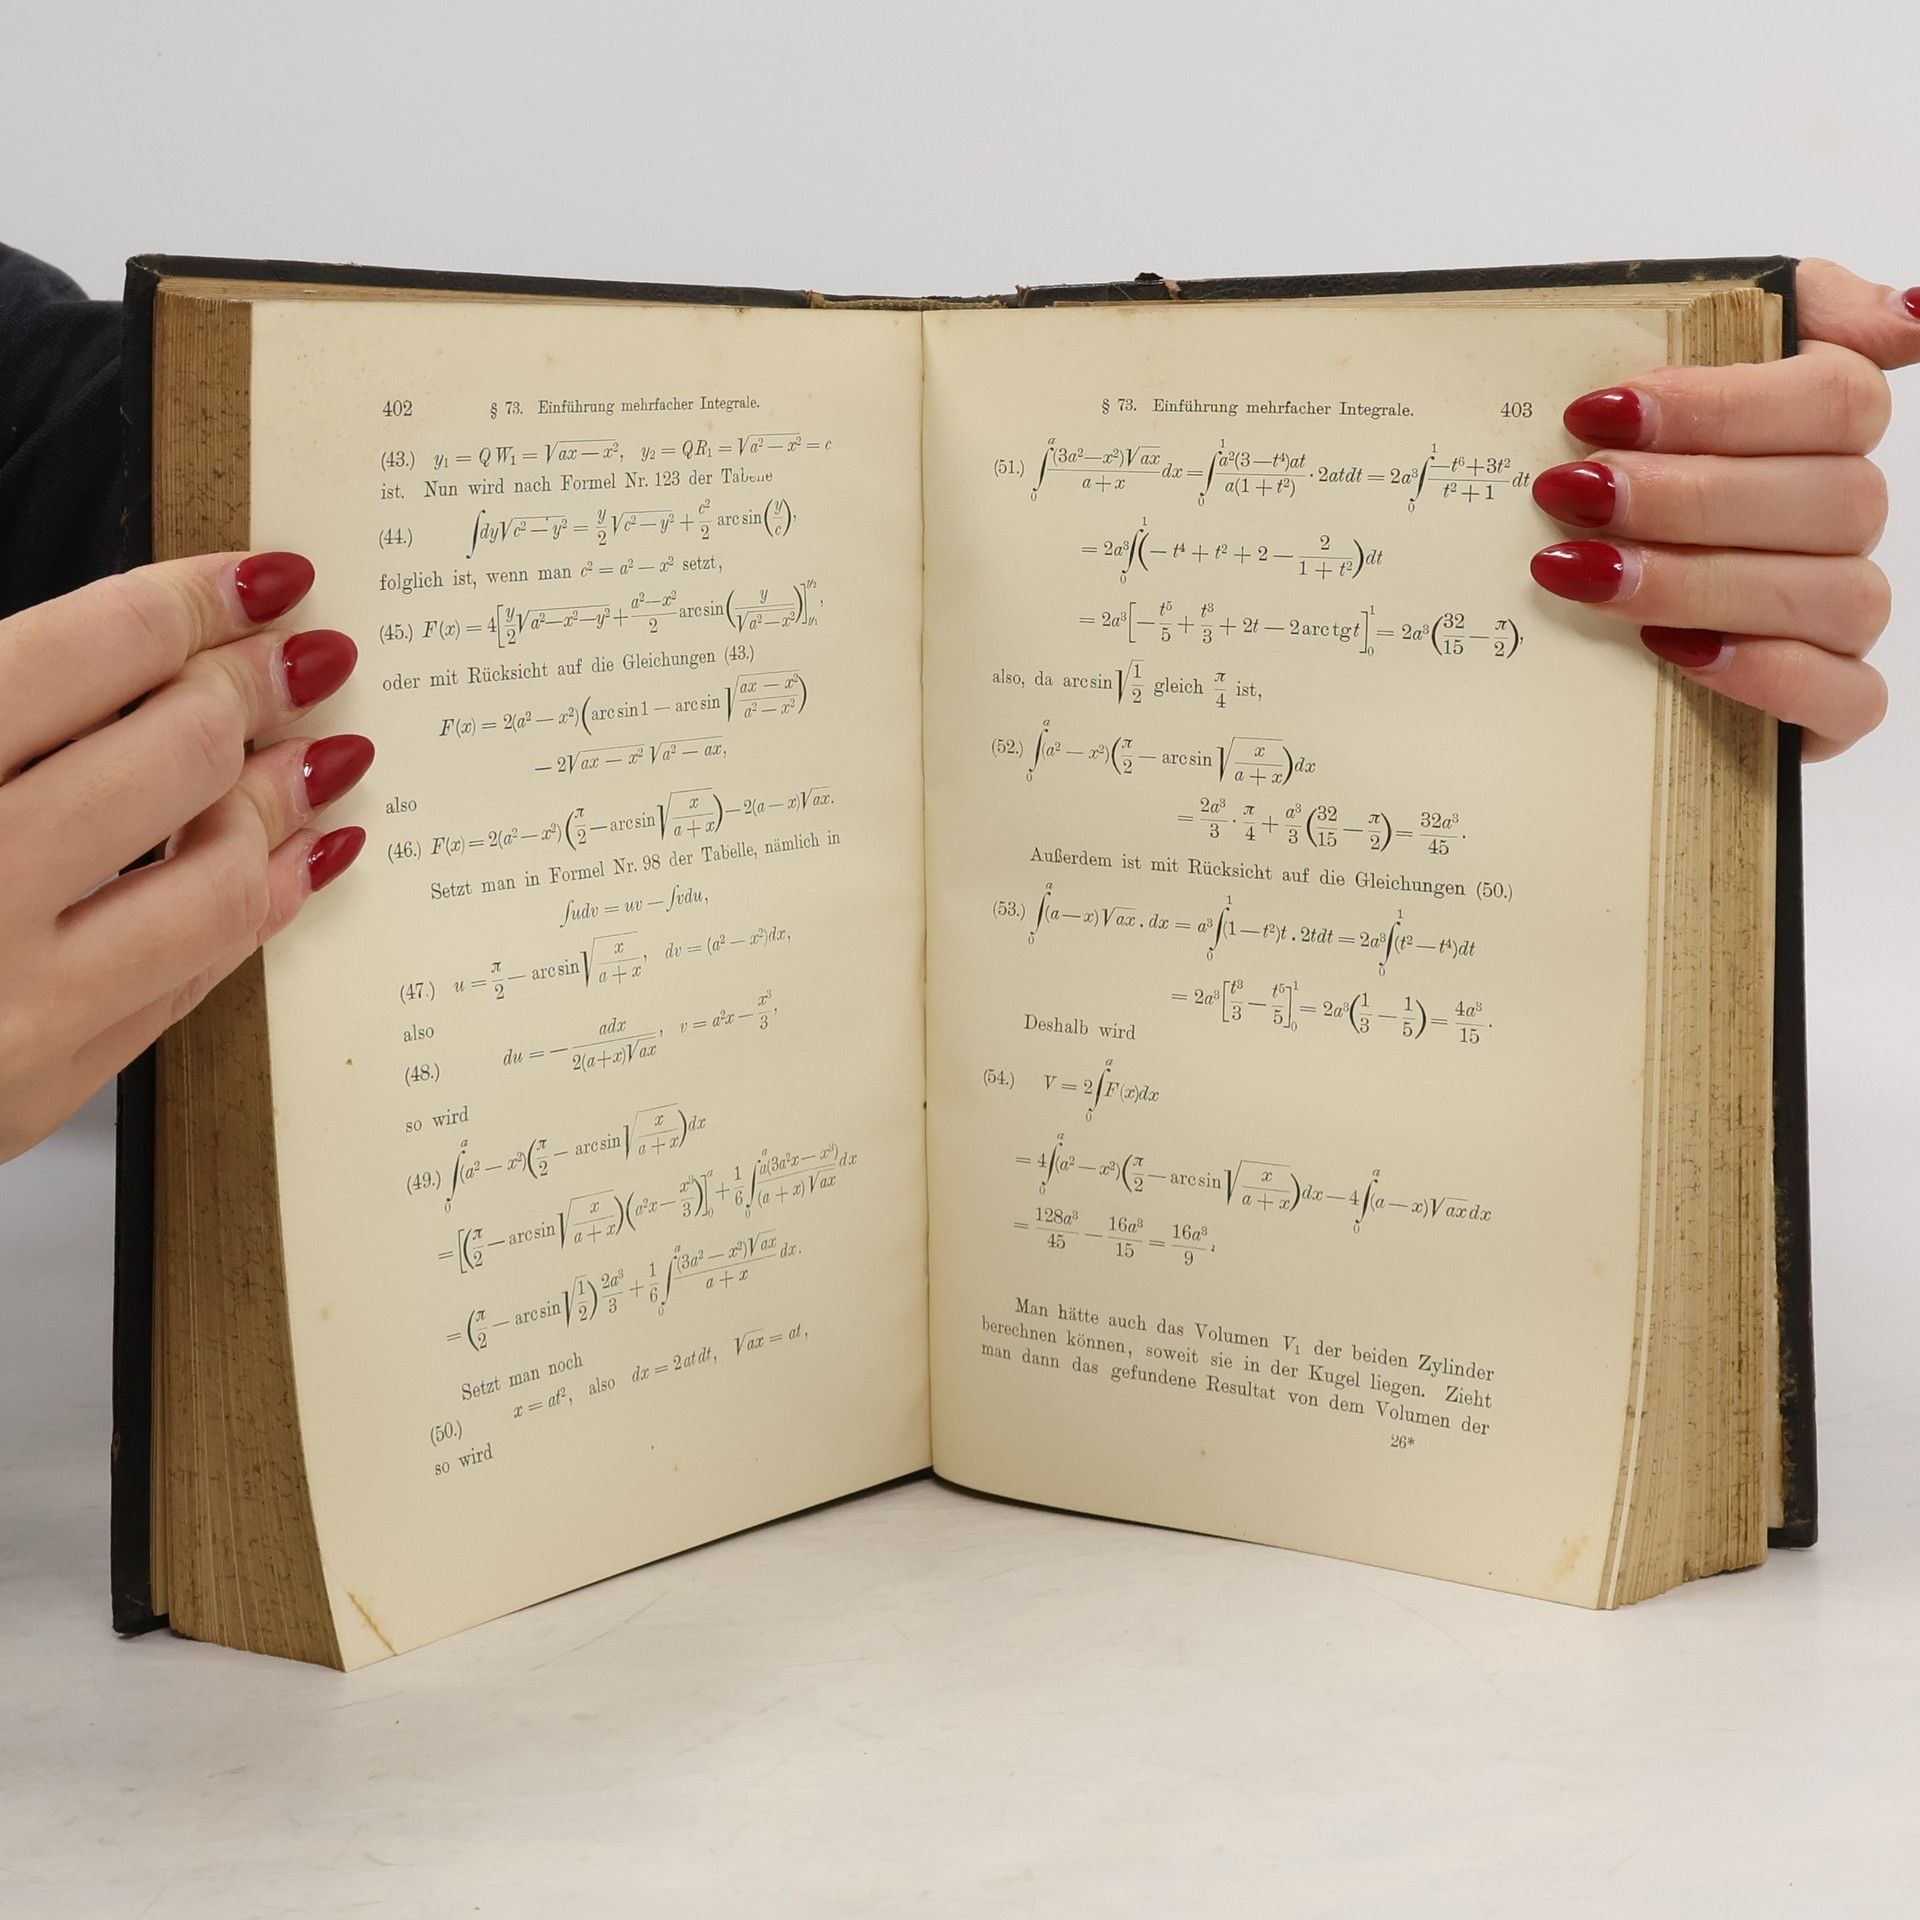 402 § 73. Einführung mehrfacher Integrale.
(43.) y₁ = QW₁ = √(ax − x²), y₂ = QR₁ = √(a² − x²) = c
ist. Nun wird nach Formel Nr. 123 der Tabelle
(44.) ∫dy√(c² − y²) = y/2 √(c² − y²) + c²/2 arc sin(y/c),
folglich ist, wenn man c² = a² − x² setzt,
(45.) F(x) = 4[y/2 √(a² − x² − y²) + (a² − x²)/2 arc sin(y/√(a² − x²))]_{y₁}^{y₂},
oder mit Rücksicht auf die Gleichungen (43.)
F(x) = 2(a² − x²)(arc sin 1 − arc sin √((ax − x²)/(a² − x²)))
− 2√(ax − x²) √(a² − ax),
also
(46.) F(x) = 2(a² − x²)(π/2 − arc sin √(x/(a + x))) − 2(a − x)√(ax).
Setzt man in Formel Nr. 98 der Tabelle, nämlich in
∫udv = uv − ∫vdu,
(47.) u = π/2 − arc sin √(x/(a + x)), dv = (a² − x²)dx,
also
(48.) du = − adx/(2(a+x)√(ax)), v = a²x − x³/3,
so wird
(49.) ∫₀ᵃ(a² − x²)(π/2 − arc sin √(x/(a + x)))dx
= [(π/2 − arc sin √(x/(a + x)))(a²x − x³/3)]₀ᵃ + 1/6 ∫₀ᵃ a(3a²x − x³)/((a + x)√(ax)) dx
= (π/2 − arc sin √(1/2)) 2a³/3 + 1/6 ∫₀ᵃ (3a² − x²)√(ax)/(a + x) dx.
Setzt man noch
(50.) x = at², also dx = 2atdt, √(ax) = at,
so wird
§ 73. Einführung mehrfacher Integrale. 403
(51.) ∫₀ᵃ (3a² − x²)√(ax)/(a + x) dx = ∫₀¹ a²(3 − t⁴)at/(a(1 + t²)) · 2atdt = 2a³∫₀¹ (−t⁶ + 3t²)/(t² + 1) dt
= 2a³∫₀¹(− t⁴ + t² + 2 − 2/(1 + t²))dt
= 2a³[− t⁵/5 + t³/3 + 2t − 2 arc tg t]₀¹ = 2a³(32/15 − π/2),
also, da arc sin √(1/2) gleich π/4 ist,
(52.) ∫₀ᵃ(a² − x²)(π/2 − arc sin √(x/(a + x)))dx
= 2a³/3 · π/4 + a³/3 (32/15 − π/2) = 32a³/45.
Außerdem ist mit Rücksicht auf die Gleichungen (50.)
(53.) ∫₀ᵃ(a − x)√(ax) . dx = a³∫₀¹(1 − t²)t . 2tdt = 2a³∫₀¹(t² − t⁴)dt
= 2a³[t³/3 − t⁵/5]₀¹ = 2a³(1/3 − 1/5) = 4a³/15.
Deshalb wird
(54.) V = 2∫₀ᵃF(x)dx
= 4∫₀ᵃ(a² − x²)(π/2 − arc sin √(x/(a + x)))dx − 4∫₀ᵃ(a − x)√(ax)dx
= 128a³/45 − 16a³/15 = 16a³/9;
Man hätte auch das Volumen V₁ der beiden Zylinder
berechnen können, soweit sie in der Kugel liegen. Zieht
man dann das gefundene Resultat von dem Volumen der
26*